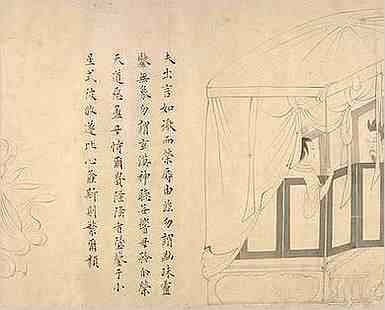 夫出言如微而榮辱由茲勿謂幽昧靈
鑒無象勿謂玄漠神聽無響毋矜爾榮
天道惡盈毋恃爾貴隆隆者墜鑒于小
星戒彼攸遂比心螽斯則繁爾類